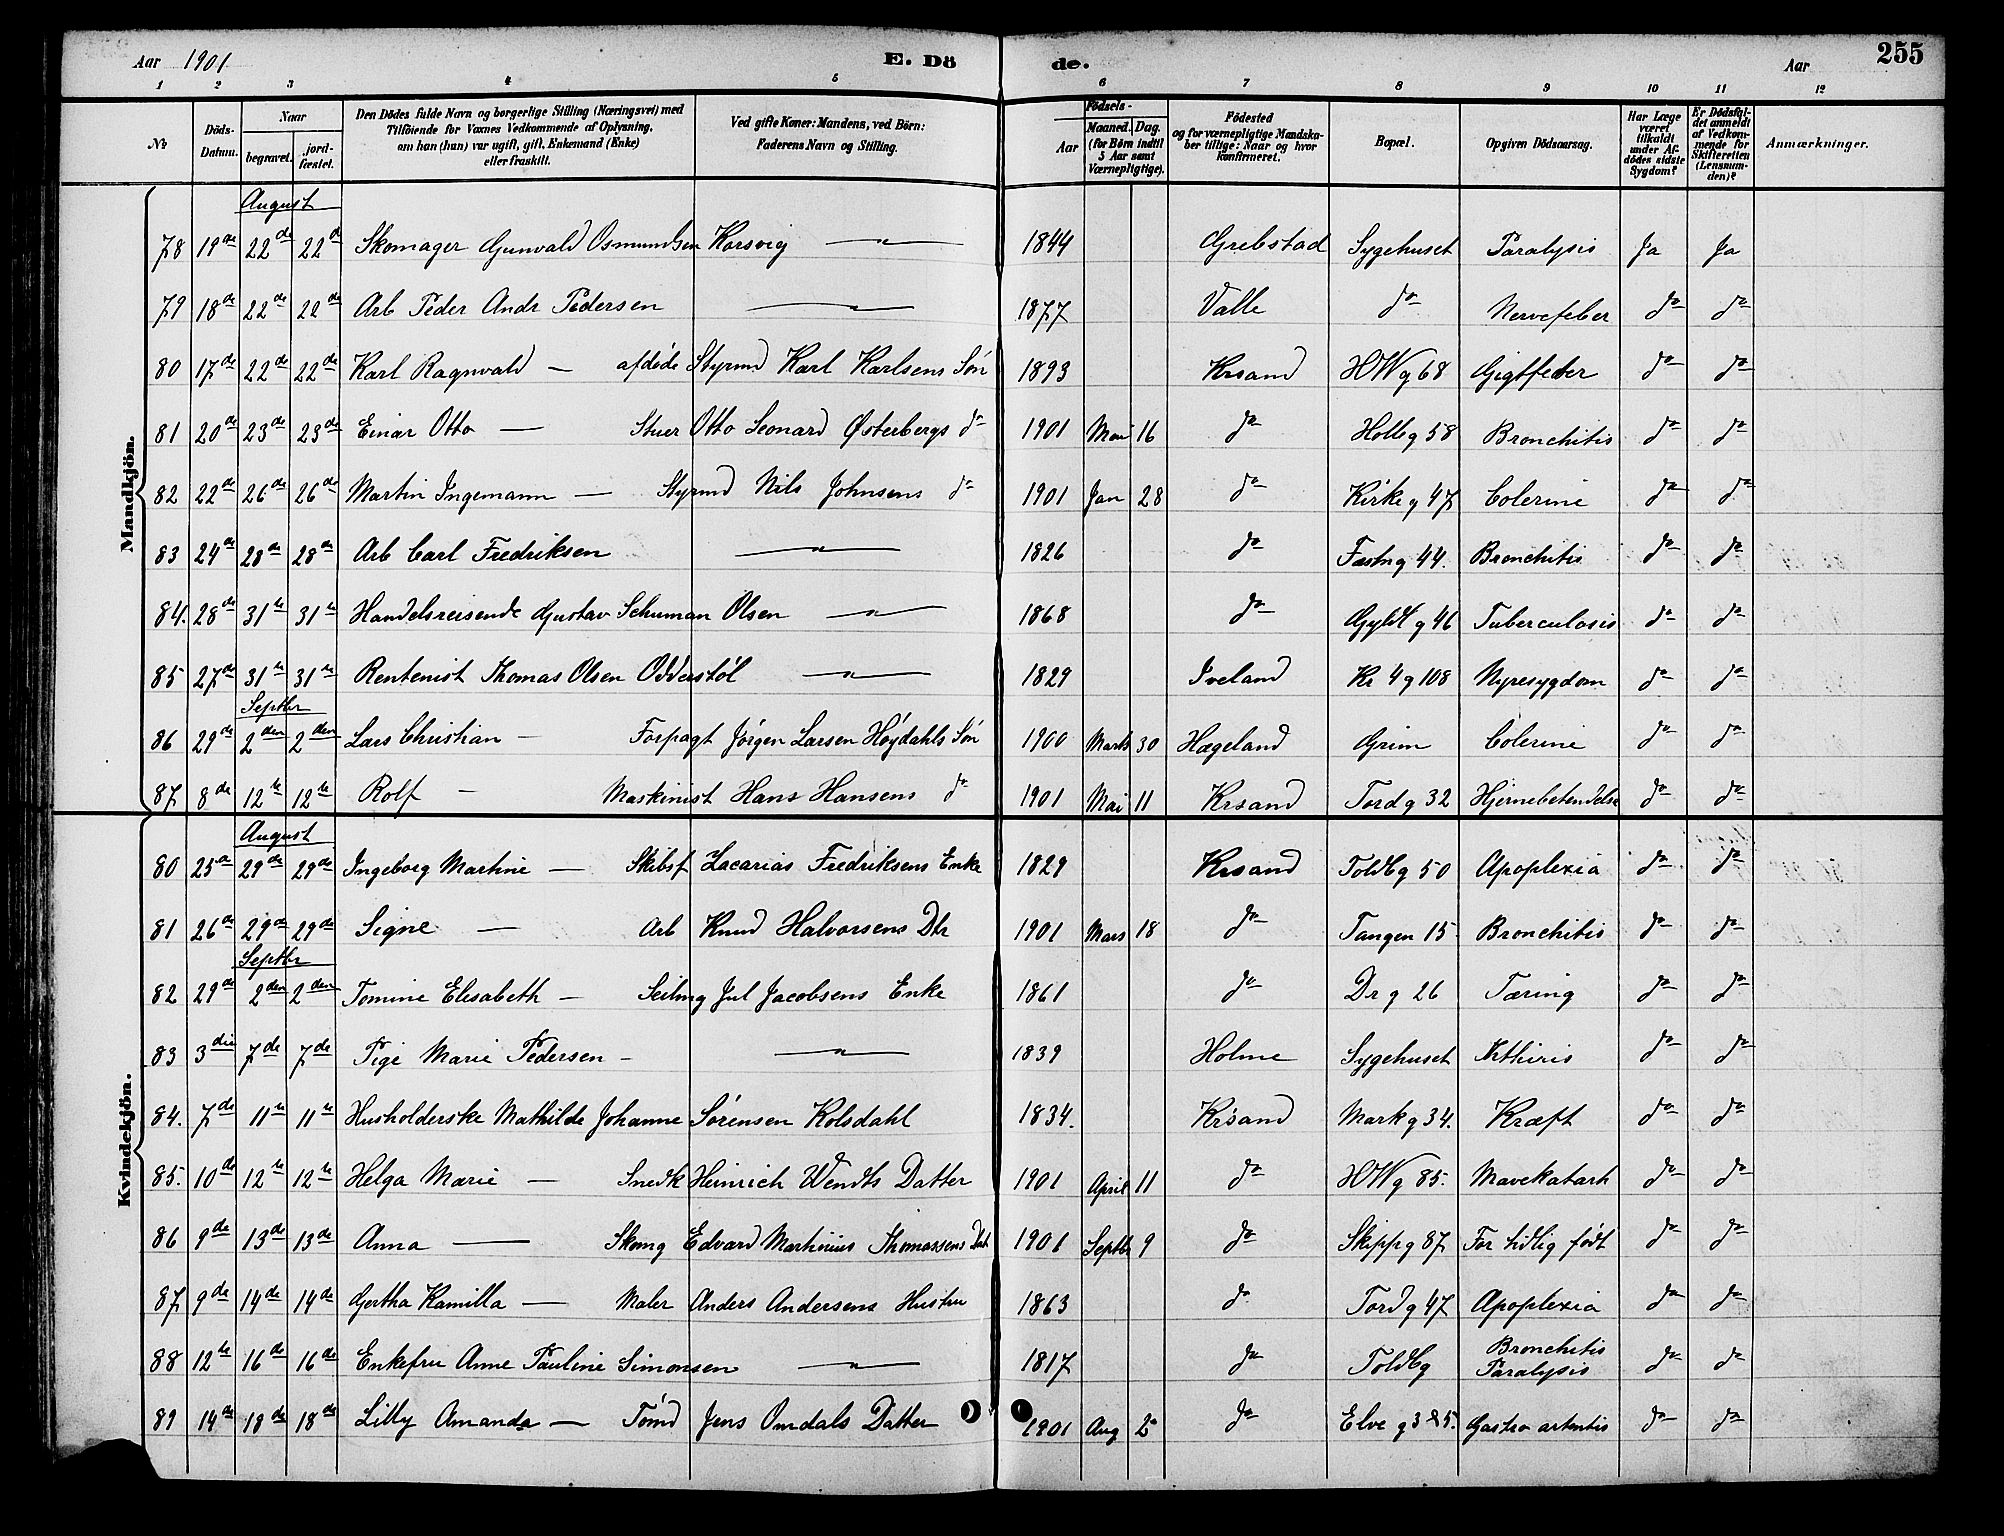 Aar 1901 E. Dö de. Aar 255
1 2 3 4 5 6 7 8 9 10 11 12
No Döds-Datum. Naar begravet. jordfæstet. Den Dödes fulde Navn og borgerlige Stilling (Næringsvei) med Tilföiende for Voxnes Vedkommende af Oplysning, om han (hun) var ugift, gift, Enkemand (Enke) eller fraskilt. Ved gifte Koner: Mandens, ved Börn: Faderens Navn og Stilling. Födsels- Aar Maaned. Dag. (for Börn indtil 5 Aar samt Værnepligtige). Födested og for værnepligtige Mandskaber tillige: Naar og hvor konfirmeret. Bopæl. Opgiven Dödsaarsag. Har Læge været tilkaldt under Afdödes sidste Sygdom? Er Dödsfaldet anmeldt af Vedkommende for Skifteretten (Lensmanden)? Anmærkninger.
Mandkjön.
August
78 19de 22de 22d Skomager Gunvald Osmundsen Korsvig — " — 1844 Grebstad Sygehuset Paralysis Ja Ja
79 18de 22de 22de Arb Peder Andr Pedersen — " — 1877 Valle do Nervefeber do do
80 17de 22de 22de Karl Ragnvald — afdøde Styrmd Karl Karlsens Søn 1893 Krsand HWg 68 Gigtfeber do do
81 20de 23de 23de Einar Otto — Stuer Otto Leonard Østerbergs do 1901 Mai 16 do Holbg 58 Bronchitis do do
82 22de 26de 26de Martin Ingemann — Styrmd Nils Johnsens do 1901 Jan 28 do Kirkeg 47 Colerine do do
83 24de 28de 28de Arb Carl Fredriksen — " — 1826 do Fæstng 44. Bronchitis do do
84. 28de 31te 31te Handelsreisende Gustav Schuman Olsen — " — 1868 do Gyldl g 46 Tuberculosis do do
85 27de 31te 31te Rentenist Thomas Olsen Odderstøl — " — 1829 Iveland Kr 4 g 108 Nyresygdom do do
Septbr
86 29de 2den 2den Lars Christian — Forpagt Jørgen Larsen Høydahls Søn 1900 Marts 30 Hægeland Grim Colerine do do
87 8de 12te 12te Rolf — Maskinist Hans Hansens do 1901 Mai 11 Krsand Tordg 32 Hjernebetendelse do do
Kvindekjön.
August
80 25d 29de 29de Ingeborg Martine — Skibsf Zacarias Fredriksens Enke 1829 Krsand Toldbg 50 Apoplexia do do
81 26de 29de 29de Signe — Arb Knud Halvorsens Dtr 1901 Mars 18 do Tangen 15 Bronchitis do do
Septbr
82 29de 2den 2den Tomine Elisabeth — Seilmg Jul Jacobsens Enke 1861 do Dr g 26 Tæring do do
83 3die 7de 7de Pige Marie Pedersen — — " — 1839 Holme Sygehuset do do
84. 7de 11te 11te Husholderske Mathilde Johanne Sørensen Kolsdahl 1834. Krsand Markg 34. Kræft do do
85. 10de 12te 12te Helga Marie — Snedk Heinrich Wendts Datter 1901 April 11 do HWg 85. Mavekatarh do do
86 9de 13de 13de Anna — Skomg Edvard Martinius Thomassens Datt 1901 Septbr 9 do Skippg 87 For tidlig født do do
87 9de 14de 14de Gertha Kamilla — Maler Anders Andersens Hustru 1863 do Tordg 47 Apoplexia do do
88 12te 16de 16de Enkefru Anne Pauline Simonsen — " — 1817 do Toldbg Bronchitis Paralysis do do
89 14de 18de 18de Lilly Amanda — Tømd Jens Omdals Datter 1901 Aug 2 do Elveg Gastro do do